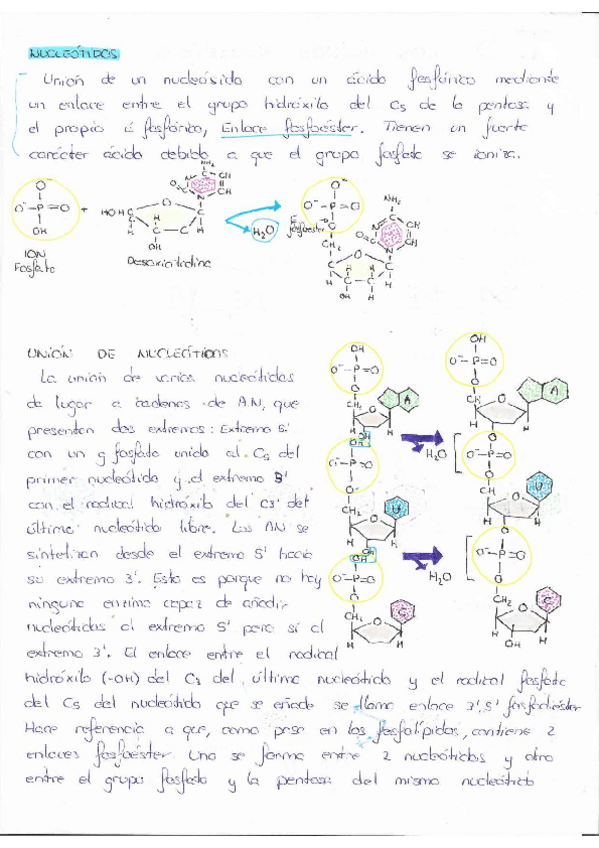 NUCLEÓTIDOS
Unión de un nucleósido con un ácido fosfórico mediante
un enlace entre el grupo hidróxilo del C5 de la pentosa y
el propio á fosfórico, Enlace fosfoéster. Tienen un fuerte
carácter ácido debido a que el grupo fosfato se ioniza.
O⁻
O⁻-P=O
OH
ION
Fosfato
+
HOH₂C
O
NH₂
CH
CH
N
H
OH
Desoxicitidina
H₂O
O⁻
O⁻-P=O
O
E
fosfoéster
CH₂
O
NH₂
CH
CH
N
H
OH
H
UNIÓN DE NUCLEÓTIDOS
La unión de varios nucleótidos
da lugar a cadenas de A.N, que
presentan dos extremos: Extremo 5'
con un g fosfato unido al C5 del
primer nucleótido y el extremo 3'
con el radical hidróxilo del C3' del
último nucleótido libre. Los AN se
sintetizan desde el extremo 5' hacia
su extremo 3'. Esto es porque no hay
ninguna enzima capaz de añadir
nucleótidos al extremo 5' pero sí al
extremo 3'. El enlace entre el radical
hidróxilo (-OH) del C3 del último nucleótido y el radical fosfato
del C5 del nucleótido que se añade se llama enlace 3',5' fosfodiéster
Hace referencia a que, como pasa en los fosfolípidos, contiene 2
enlaces fosfoéster. Uno se forma entre 2 nucleótidos y otro
entre el grupo fosfato y la pentosa del mismo nucleótido
OH
O⁻-P=O
O
CH₂
O
A
OH
OH
O⁻-P=O
O
CH₂
O
U
OH
OH
O⁻-P=O
O
CH₂
O
C
H₂O
H₂O
OH
O⁻-P=O
O
CH₂
O
A
O
O⁻-P=O
O
CH₂
O
U
O
O⁻-P=O
O
CH₂
O
C
OH